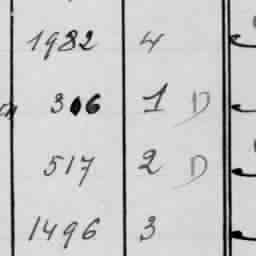 1982 4
306 1 D
517 2 D
1496 3